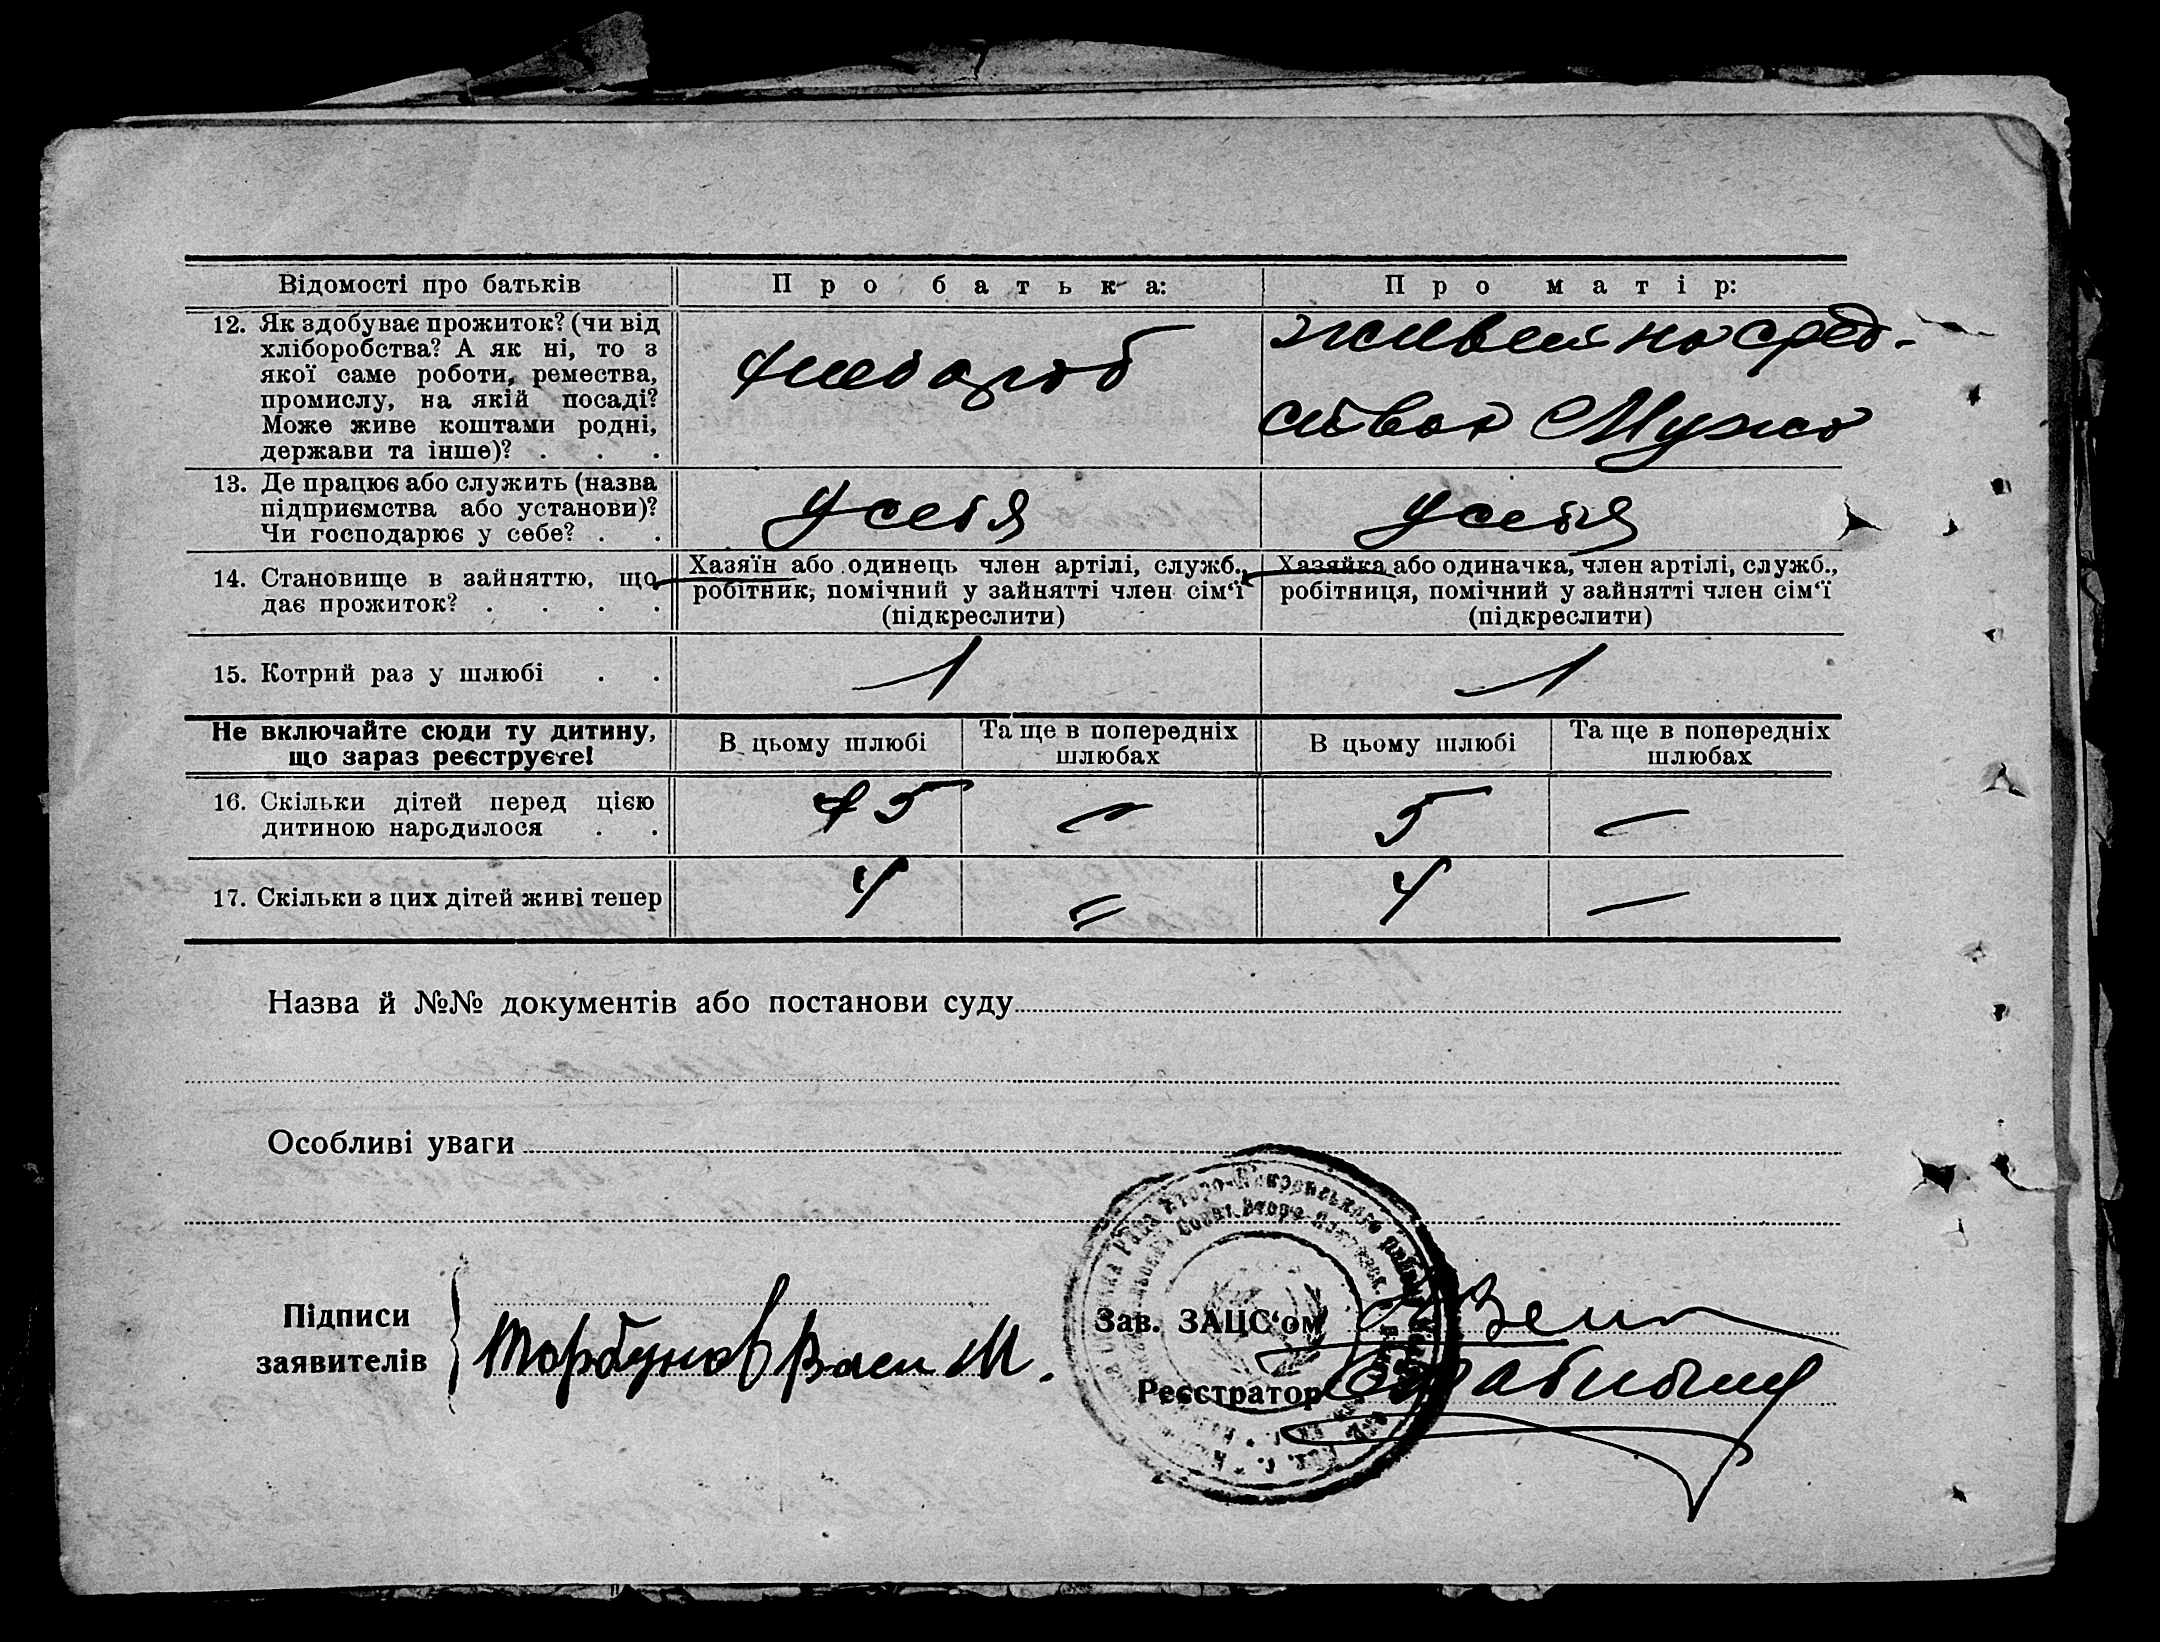 Відомості про батьків
Про батька:
Про матір:
12. Як здобуває прожиток? (чи від
хліборобства? А як ні, то з
якої саме роботи, ремества,
промислу, на якій посаді?
Може живе коштами родні,
держави та інше)? . . .
хлебороб
живет на сред-
ствах Мужа
13. Де працює або служить (назва
підприємства або установи)?
Чи господарює у себе? . .
У себя
У себя
14. Становище в зайняттю, що
дає прожиток? . . . .
Хазяїн або одинець член артілі, служб.,
робітник, помічний у зайнятті член сім‘ї
(підкреслити)
Хазяйка або одиначка, член артілі, служб.,
робітниця, помічний у зайнятті член сім‘ї
(підкреслити)
15. Котрий раз у шлюбі . .
1
1
Не включайте сюди ту дитину,
що зараз реєструєте!
В цьому шлюбі
Та ще в попередніх
шлюбах
В цьому шлюбі
Та ще в попередніх
шлюбах
16. Скільки дітей перед цією
дитиною народилося . .
5
—
5
—
17. Скільки з цих дітей живі тепер
4
=
4
—
Назва й №№ документів або постанови суду
Особливі уваги
Підписи
заявителів
Горбунов Васи М.
Зав. ЗАЦС‘ом
Реєстратор